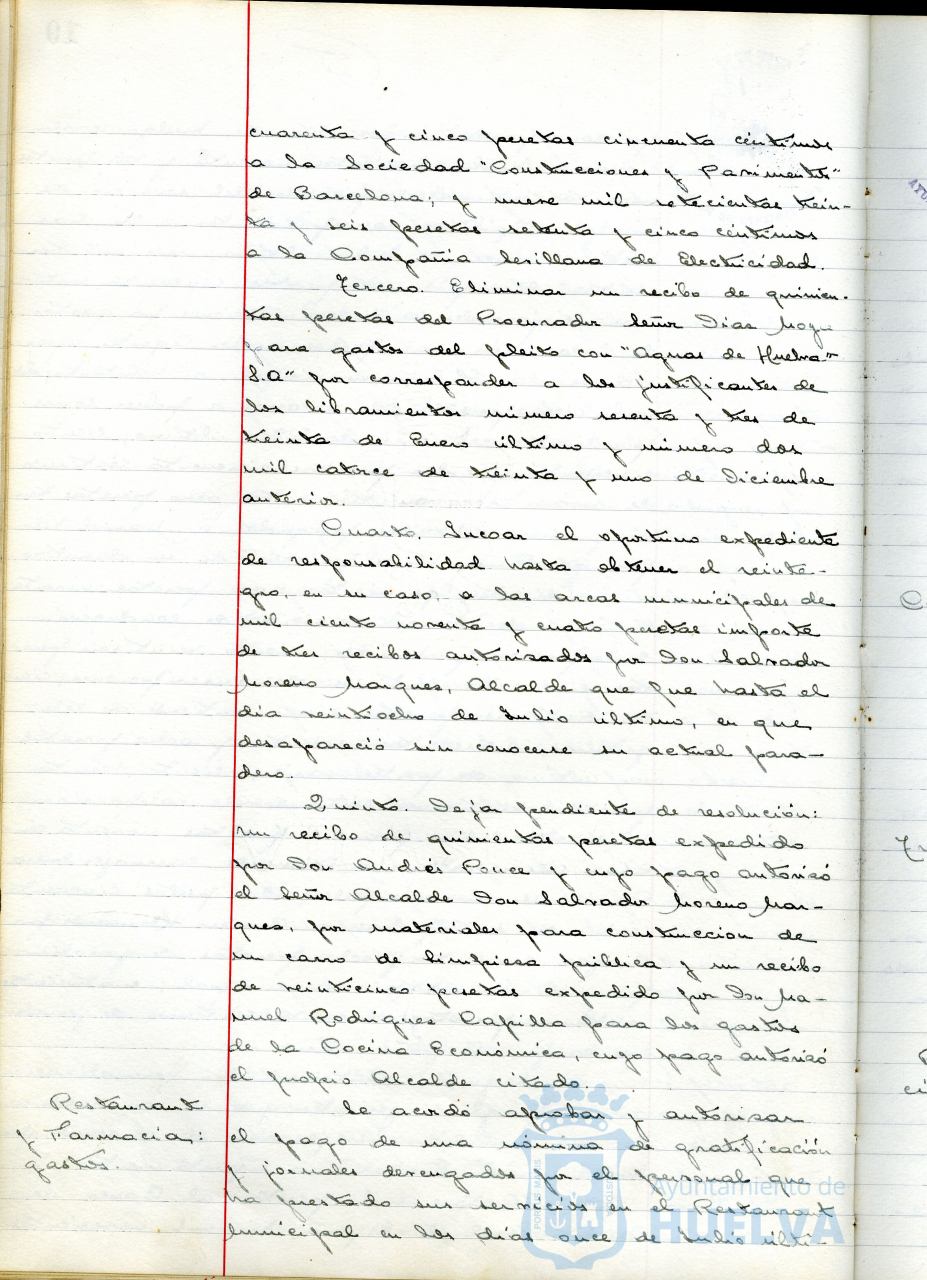 cuarenta y cinco pesetas cincuenta céntimos
a la Sociedad "Construcciones y Pavimentos"
de Barcelona; y nueve mil setecientas trein-
ta y seis pesetas setenta y cinco céntimos
a la Compañia Sevillana de Electricidad.
Tercero. Eliminar un recibo de quinien-
tas pesetas del Procurador Señor Diaz
para gastos del pleito con "Aguas de Huelva
S.A" por corresponder a los justificantes de
los libramientos número sesenta y tres de
treinta de Enero último y número dos
mil catorce de treinta y uno de Diciembre
anterior.
Cuarto. Incoar el oportuno expediente
de responsabilidad hasta obtener el reinte-
gro, en su caso, a las arcas municipales de
mil ciento noventa y cuatro pesetas importe
de tres recibos autorizados por Don Salvador
Moreno Marquez, Alcalde que fue hasta el
dia veintiocho de Julio último, en que
desapareció sin conocerse su actual para-
dero.
Quinto. Dejar pendiente de resolución:
un recibo de quinientas pesetas expedido
por Don Andrés Ponce y cuyo pago autorizó
el Señor Alcalde Don Salvador Moreno Mar-
quez, por materiales para construccion de
un carro de limpieza pública y un recibo
de veinticinco pesetas expedido por Don Ma-
nuel Rodriguez Capilla para los gastos
de la Cocina Económica, cuyo pago autorizó
el propio Alcalde citado.
Restaurant
y Farmacia:
gastos.
Se acordó aprobar y autorizar
el pago de una nómina de gratificación
y jornales devengados por el personal que
ha prestado sus servicios en el Restaurant
Municipal en los dias once de Julio últi-
Ayuntamiento de
HUELVA